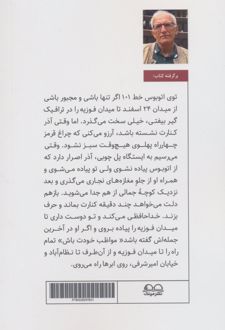 برگرفته کتاب:
توی اتوبوس خط ۱۰۱ اگر تنها باشی و مجبور باشی
از میدان ۲۴ اسفند تا میدان فوزیه را در ترافیک
گیر بیفتی، خیلی سخت می‌گذرد. اما وقتی آذر
کنارت نشسته باشد، آرزو می‌کنی که چراغ قرمز
چهارراه پهلوی هیچ‌وقت سبز نشود. وقتی
می‌رسیم به ایستگاه پل چوبی، آذر اصرار دارد که
از اتوبوس پیاده نشوی ولی تو پیاده می‌شوی و
همراه او از جلو مغازه‌های نجاری می‌گذری و بعد
نزدیک کوچهٔ جمالی از هم جدا می‌شوید. بازهم
دلت می‌خواهد چند دقیقه کنارت بماند و حرف
بزند. خداحافظی می‌کند و تو دوست داری تا
میدان فوزیه را پیاده بروی و اگر او در آخرین
جمله‌اش گفته باشد «مواظب خودت باش» تمام
راه را تا میدان فوزیه و از آن‌طرف تا نظام‌آباد و
خیابان امیرشرفی، روی ابرها راه می‌روی.